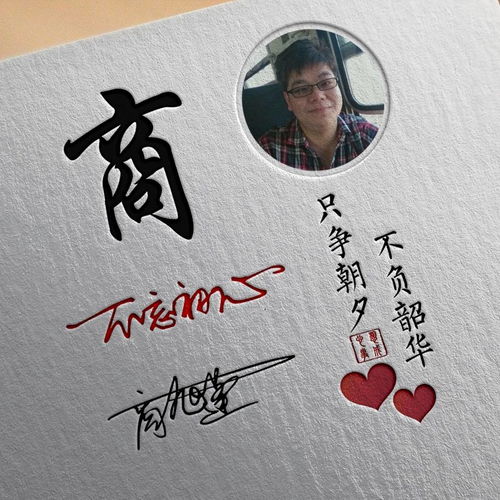 商
不忘初心
商旭
只争朝夕
不负韶华